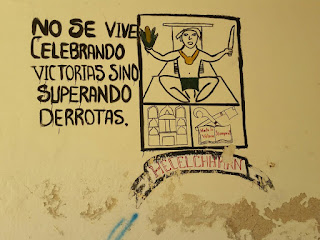 NO SE VIVE
CELEBRANDO
VICTORIAS SINO
SUPERANDO
DERROTAS.
HECELCHAKAN